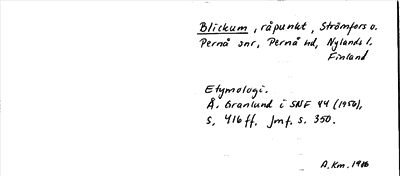 Blickum, råpunkt, Strömfors o.
Pernå snr, Pernå hd, Nylands l.
Finland
Etymologi.
Å. Granlund i SNF 44 (1956),
s. 416 ff. Jmf. s. 350.
A.Km. 1986